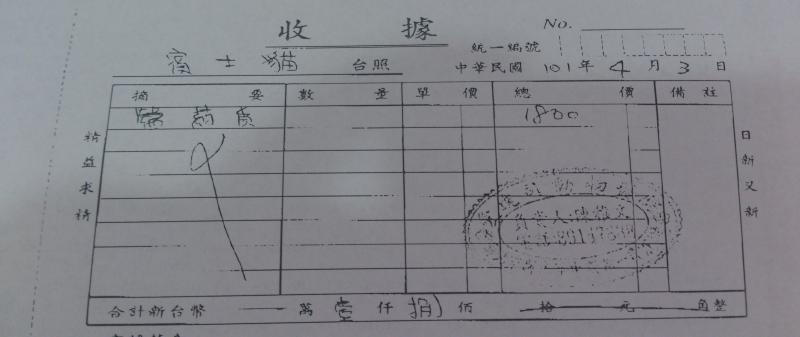 收據
No.
統一編號
賓士貓 台照
中華民國 101年4月3日
摘要 數量 單價 總價 備註
醫葯費 1800
精益求精
日新又新
負責人:陳
合計新台幣 萬壹仟捌佰拾元角整